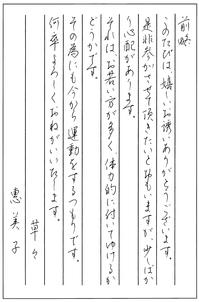 前略
このたびは嬉しいお誘いありがとうございます。
是非参加させて頂きたいと思いますが少しばか
り心配があります。
それはお若い方が多く、体力的に付いてゆけるか
どうかです。
その為にも今から運動をするつもりです。
何卒よろしくおねがいいたします。
草々
恵美子